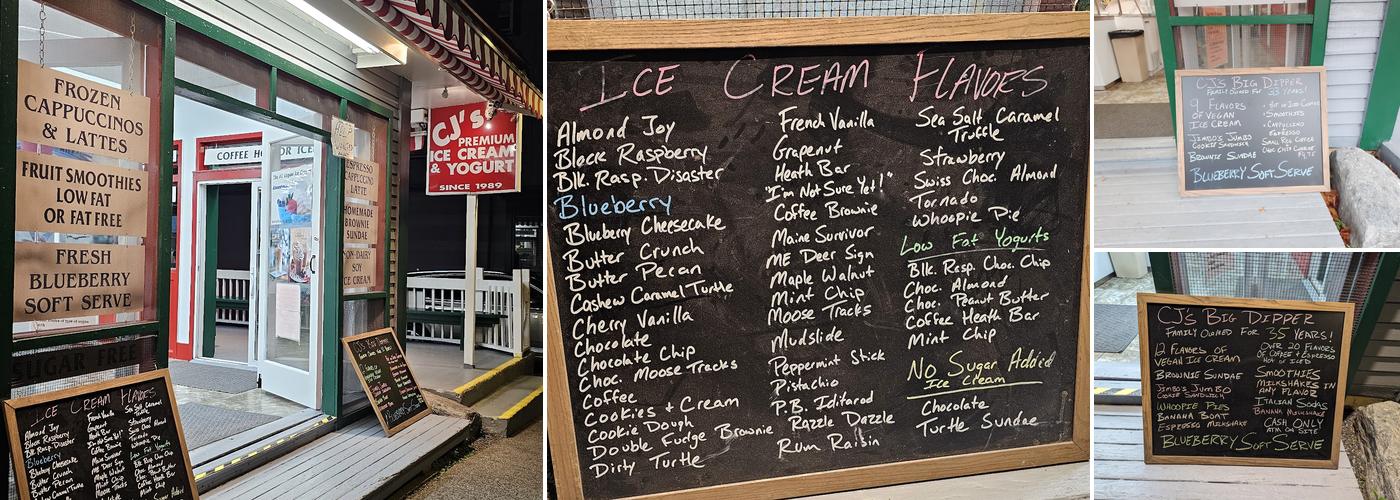 FROZEN
CAPPUCCINOS
& LATTES
FRUIT SMOOTHIES
LOW FAT
OR FAT FREE
FRESH
BLUEBERRY
SOFT SERVE
SUGAR FREE
COFFEE
CJ's
PREMIUM
ICE CREAM
& YOGURT
SINCE 1989
ESPRESSO
CAPPUCCINO
LATTE
HOMEMADE
BROWNIE
SUNDAE
NON-DAIRY
SOY
ICE CREAM
ICE CREAM FLAVORS
Almond Joy
Black Raspberry
Blk. Rasp. Disaster
Blueberry
Blueberry Cheesecake
Butter Crunch
Butter Pecan
Cashew Caramel Turtle
Cherry Vanilla
Chocolate
Chocolate Chip
Choc. Moose Tracks
Coffee
Cookies + Cream
Cookie Dough
Double Fudge Brownie
Dirty Turtle
French Vanilla
Grapenut
Heath Bar
"I'm Not Sure Yet!"
Coffee Brownie
Maine Survivor
ME Deer Sign
Maple Walnut
Mint Chip
Moose Tracks
Mudslide
Peppermint Stick
Pistachio
P.B. Iditarod
Razzle Dazzle
Rum Raisin
Sea Salt Caramel
Truffle
Strawberry
Swiss Choc. Almond
Tornado
Whoopie Pie
Low Fat Yogurts
Blk. Rasp. Choc. Chip
Choc. Almond
Choc. Peanut Butter
Coffee Heath Bar
Mint Chip
No Sugar Added
Ice Cream
Chocolate
Turtle Sundae
CJ'S BIG DIPPER
FAMILY OWNED FOR 33 YEARS!
9 FLAVORS
OF VEGAN
ICE CREAM
JIMBO'S JUMBO
COOKIE SANDWICH
BROWNIE SUNDAE
• SMOOTHIES
• CAPPUCCINO
ESPRESSO
BLUEBERRY SOFT SERVE
CJ'S BIG DIPPER
FAMILY OWNED FOR 35 YEARS!
12 FLAVORS OF
VEGAN ICE CREAM
BROWNIE SUNDAE
JIMBO'S JUMBO
COOKIE SANDWICH
WHOOPIE PIES
BANANA BOAT
ESPRESSO MILKSHAKE
OVER 20 FLAVORS
OF COFFEE + ESPRESSO
HOT OR ICED
SMOOTHIES
MILKSHAKES IN
ANY FLAVOR
ITALIAN SODAS
BANANA MILKSHAKE
CASH ONLY
ATM ON SITE
BLUEBERRY SOFT SERVE